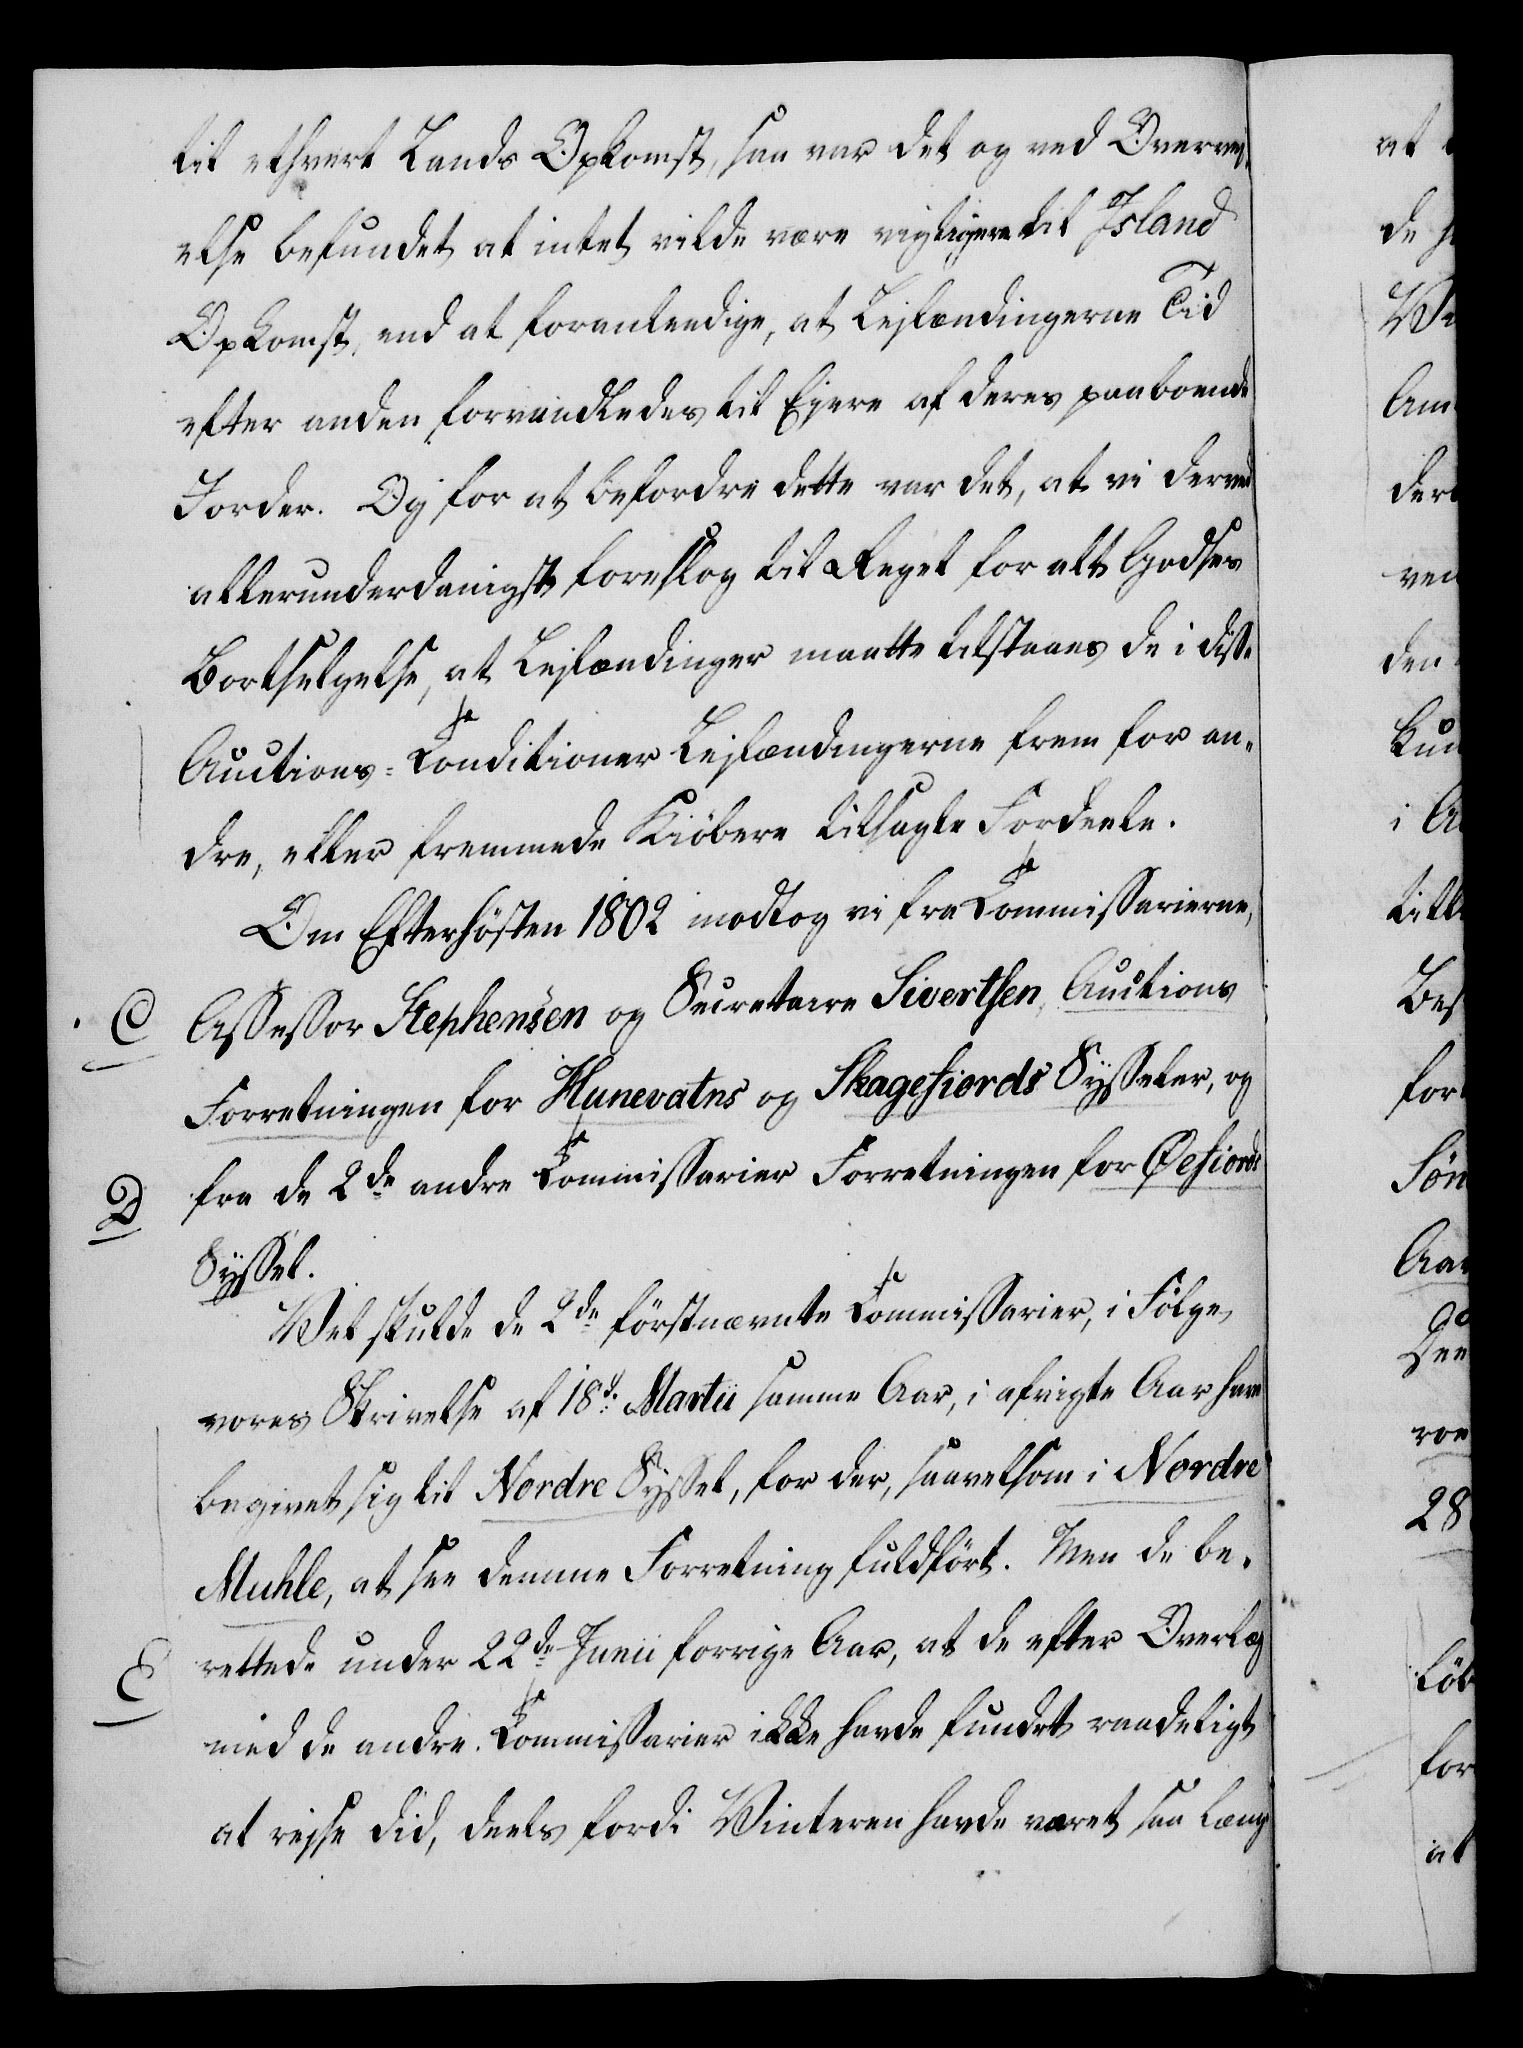 til ethvert Lands Opkomst, saa var det og ved Overvej-
else befundet at intet vilde være vigtigere til Island
Opkomst, end at foranledige, at Lejlændingerne Tid
efter anden forvandledes til Ejere af deres paaboende
Jorder. Og for at befordre dette var det, at vi derved
allerunderdanigst foreslog til Regel for alt Godses
Bortselgelse, at Lejlændinger maatte tilstaaes de i disse
Auctions-Conditioner Lejlændingerne frem for an-
dre, eller fremmede Kiöbere tilsagte Fordeele.
Om Efterhösten 1802 modtog vi fra Commissarierne,
C Assessor Stephensen og Secretaire Sivertsen, Auctions
Forretningen for Hunevatns og Skagefiords Sysseler, og
D fra de 2de andre Commissarier Forretningen for Øefiords
Syssel.
Vel skulde de 2de förstnævnte Commissarier, i Fölge
vores Skrivelse af 18d: Martii samme Aar, i afvigte Aar have
begivet sig til Nordre Syssel, for der, saavelsom i Nordre
Muhle, at see denne Forretning fuldfört. Men de be-
E rettede under 22de Junii forrige Aar, at de efter Overlæg
med de andre Commissarier ikke havde fundet raadeligt
at rejse did, deels fordi Vinteren havde været saa lang